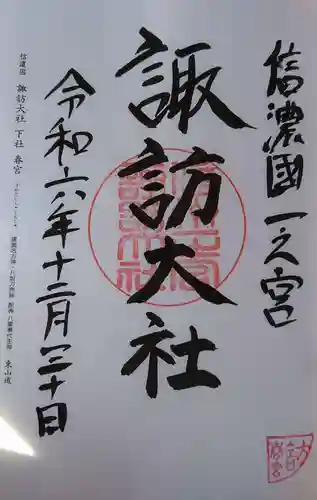 信濃國一之宮
諏訪大社
令和六年十二月三十日
信濃国 諏訪大社 下社 春宮
東山道